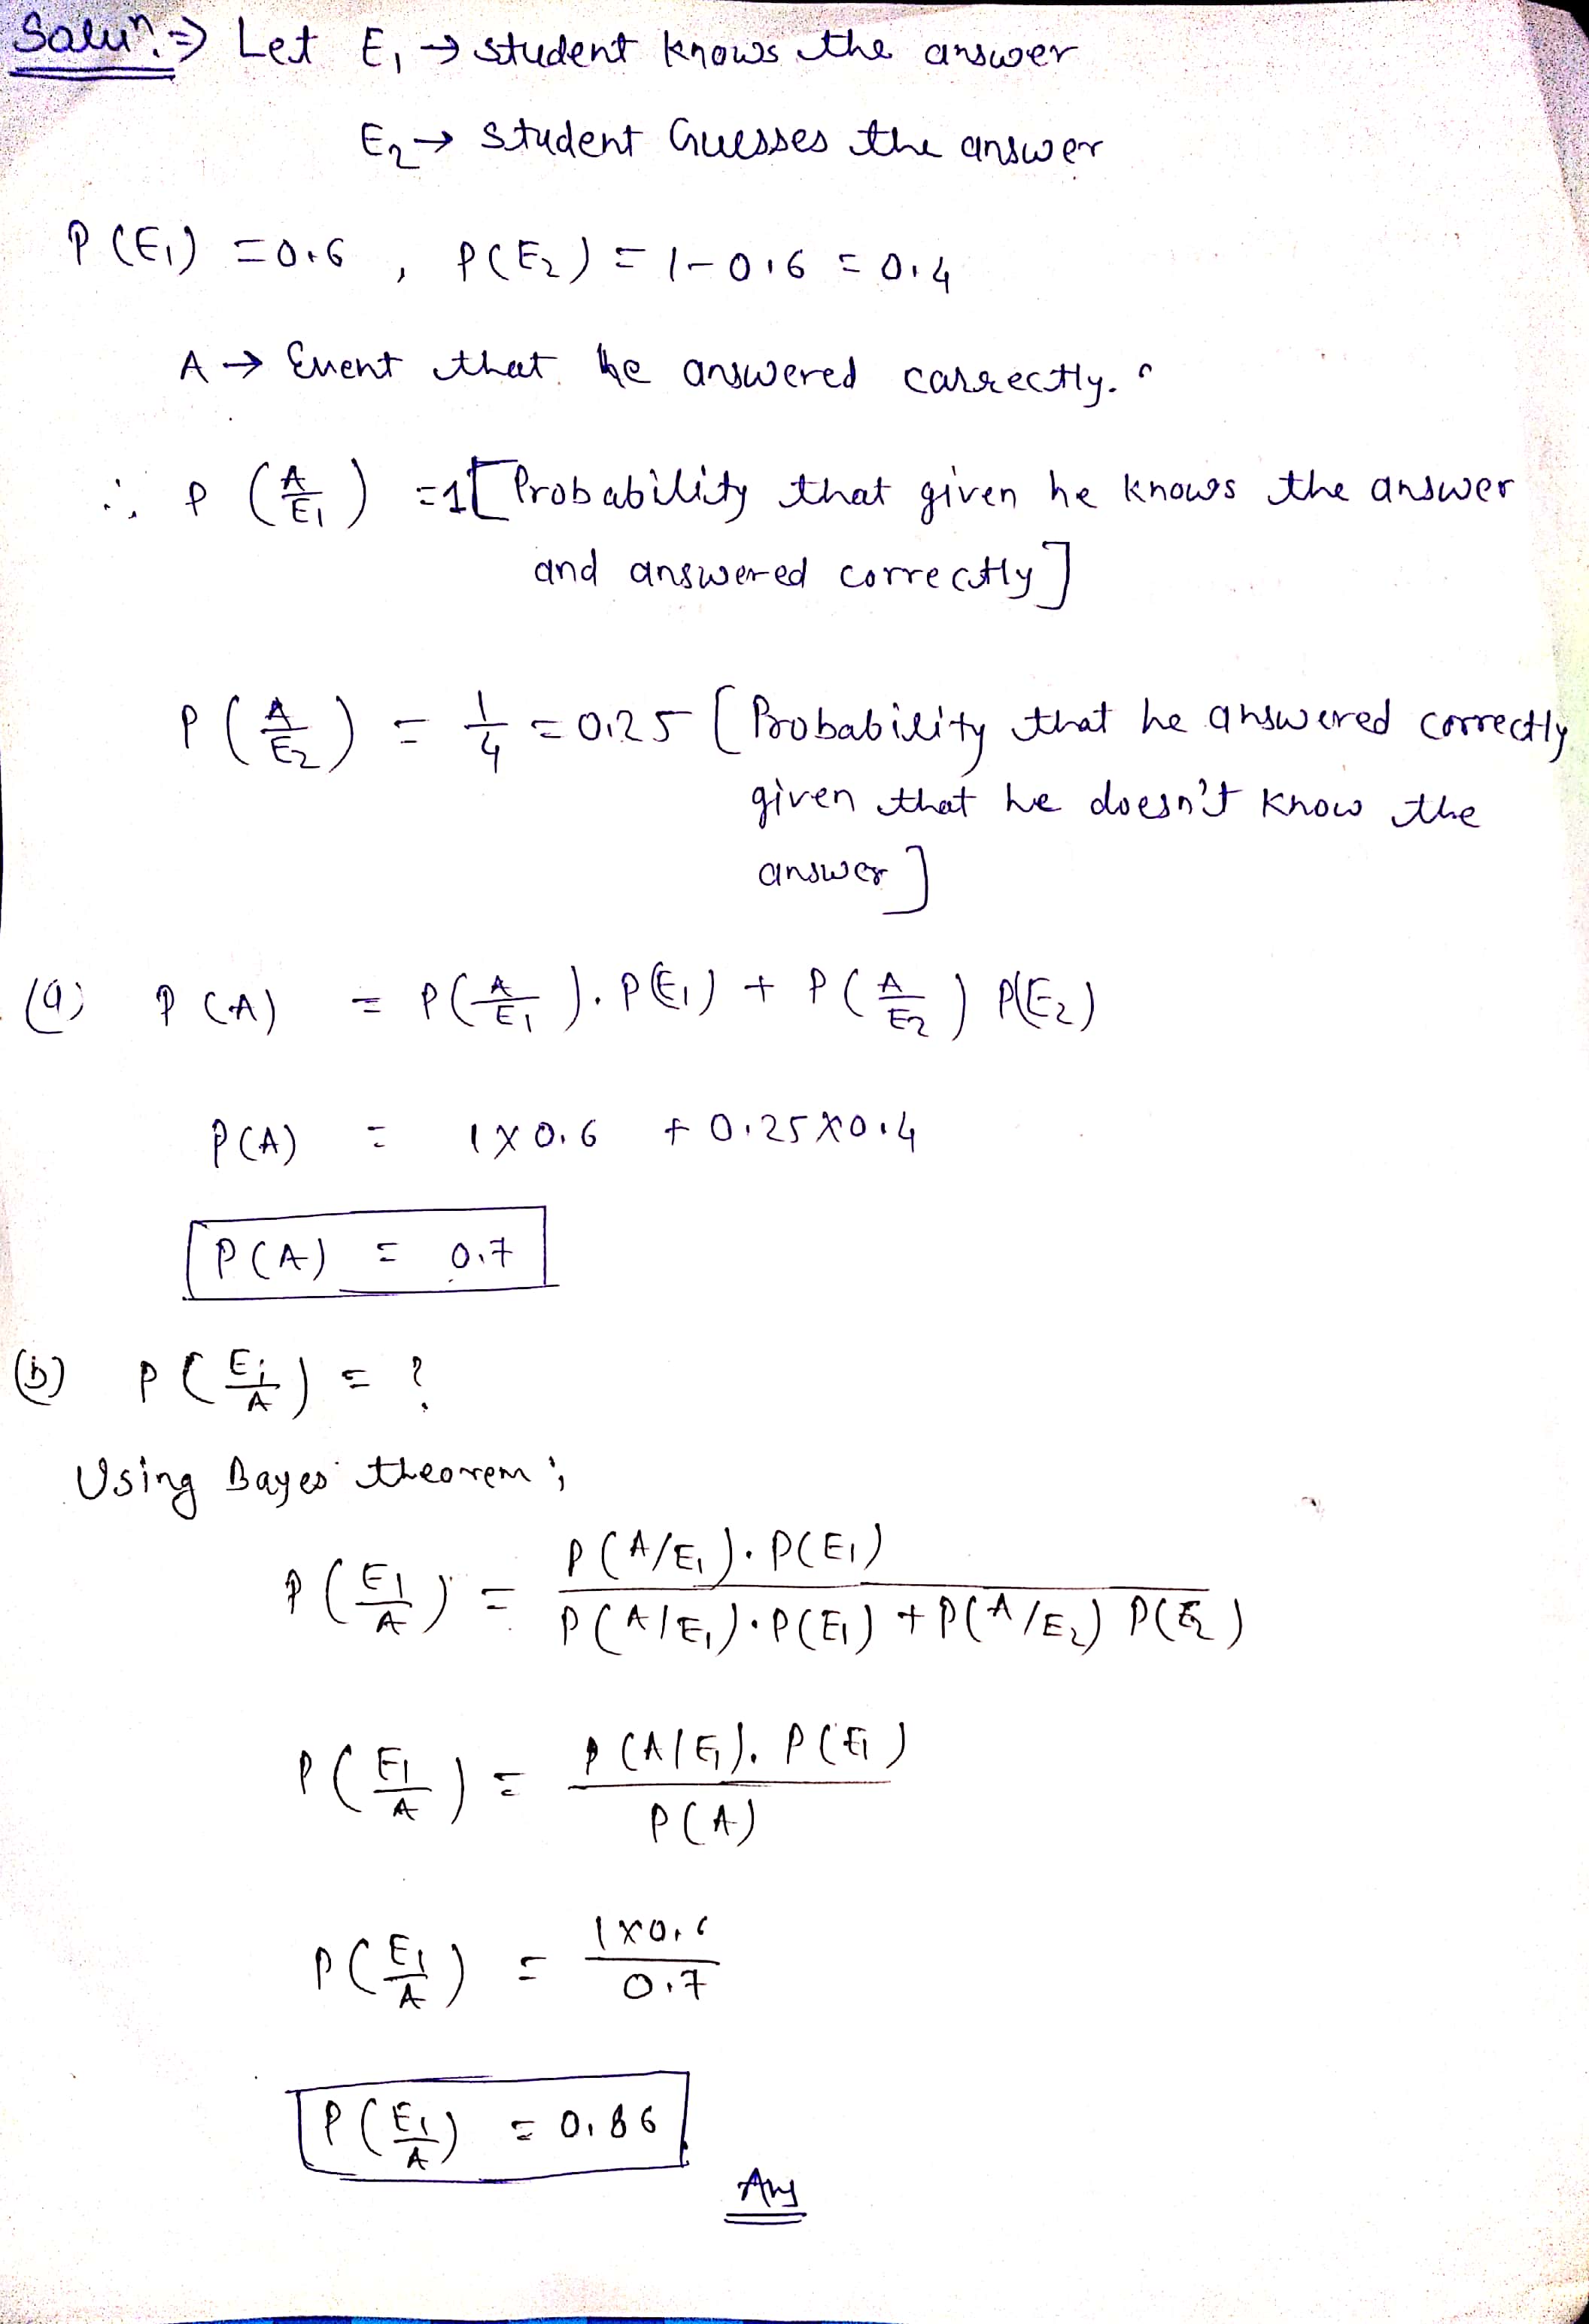 Solun. ⇒ Let E₁ → student knows the answer
E₂ → student Guesses the answer
P(E₁) = 0.6 , P(E₂) = 1-0.6 = 0.4
A → Event that he answered correctly.
∴ P(A/E₁) = 1 [Probability that given he knows the answer
and answered correctly]
P(A/E₂) = 1/4 = 0.25 [Probability that he answered correctly
given that he doesn't know the
answer]
(a) P(A) = P(A/E₁). P(E₁) + P(A/E₂) P(E₂)
P(A) = 1×0.6 + 0.25×0.4
P(A) = 0.7
(b) P(E₁/A) = ?
Using Bayes theorem ;
P(E₁/A) = P(A/E₁). P(E₁) / P(A/E₁).P(E₁) + P(A/E₂) P(E₂)
P(E₁/A) = P(A/E₁). P(E₁) / P(A)
P(E₁/A) = 1×0.6 / 0.7
P(E₁/A) = 0.86
Ans